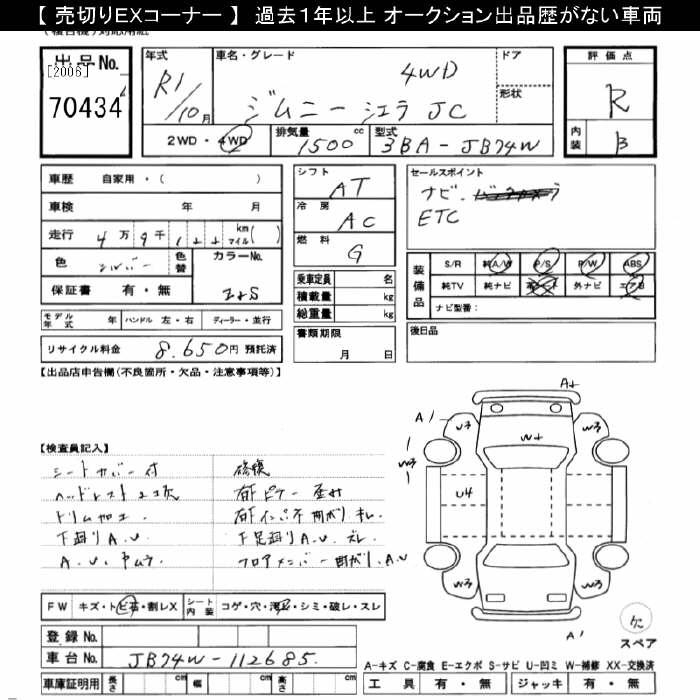 【 売切りEXコーナー 】 過去1年以上 オークション出品歴がない車両
出品No. [2006] 70434
年式 R1/10月
車名・グレード ジムニー シエラ JC 4WD
ドア 形状
評価点 R
内装 B
2WD・4WD 排気量 1500cc 型式 3BA-JB74W
車歴 自家用・( )
車検 年 月
走行 4万9千1 km マイル( )
色 シルバー 色替 カラーNo. Z2S
保証書 有・無
モデル年式 年 ハンドル 左・右 ディーラー・並行
リサイクル料金 8.650円 預託済
シフト AT
冷房 AC
燃料 G
乗車定員 名
積載量 kg
総重量 kg
書類期限 月 日
セールスポイント
ナビ.
ETC
装備品 S/R 純A/W P/S P/W ABS
純TV 純ナビ 外ナビ エアB
ナビ型番:
後日品
【出品店申告欄(不良箇所・欠品・注意事項等)】
【検査員記入】
シートカバー付 修復
ヘッドレスト 2コ欠
ドリム加工
下廻りA.U
A.U.
下足廻りA.U. ズレ
フロアメンバー曲がり.A.U
A+
A1
W3
U3
W3
W+
U4
W3
W3
A1
欠
スペア
FW キズ・トビ石・割レX シート内装 コゲ・穴・汚レ・シミ・破レ・スレ
登録No.
車台No. JB74W-112685.
車庫証明用 長さ cm 幅 cm 高さ cm
A-キズ C-腐食 E-エクボ S-サビ U-凹ミ W-補修 XX-交換済
工具 有・無 ジャッキ 有・無